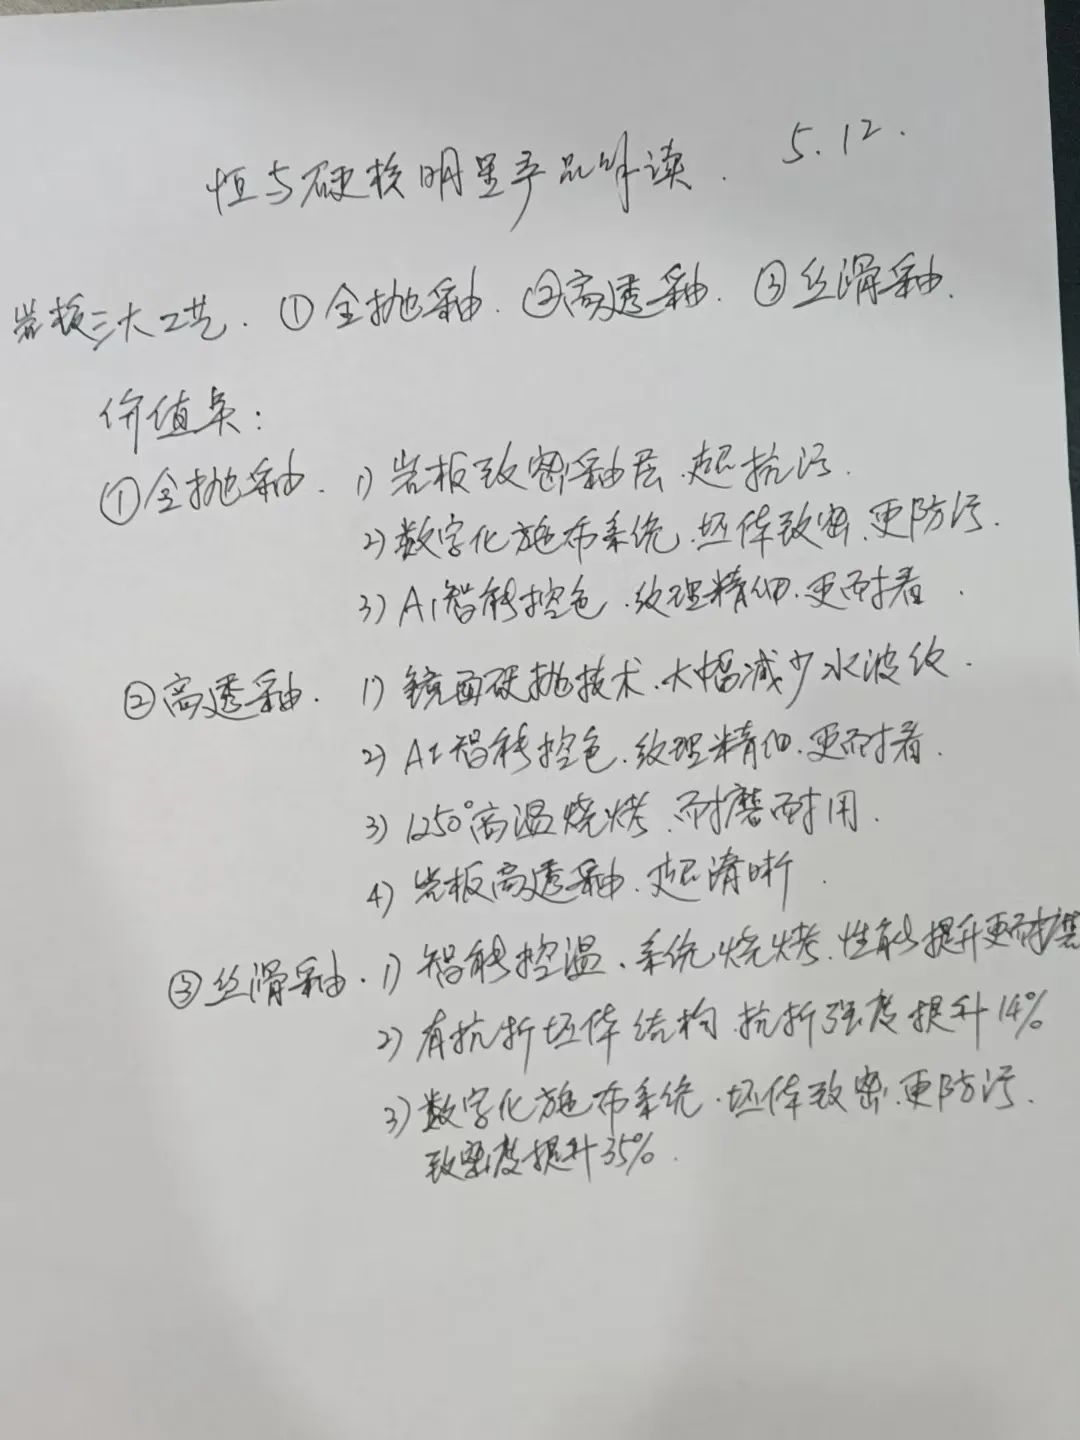 恒与硬核明星产品解读. 5.12.
岩板三大工艺. ①全抛釉. ②高透釉. ③丝滑釉.
价值点:
①全抛釉. 1) 岩板致密釉层.超抗污.
2) 数字化施布系统.坯体致密.更防污.
3) AI智能控色.纹理精细.更耐看.
②高透釉. 1) 镜面硬抛技术.大幅减少水波纹.
2) AI智能控色.纹理精细.更耐看.
3) 1250°高温烧烤.耐磨耐用.
4) 岩板高透釉.超清晰.
③丝滑釉. 1) 智能控温.系统烧烤.性能提升更耐磨
2) 有抗折坯体结构.抗折强度提升14%
3) 数字化施布系统.坯体致密.更防污.
致密度提升35%.